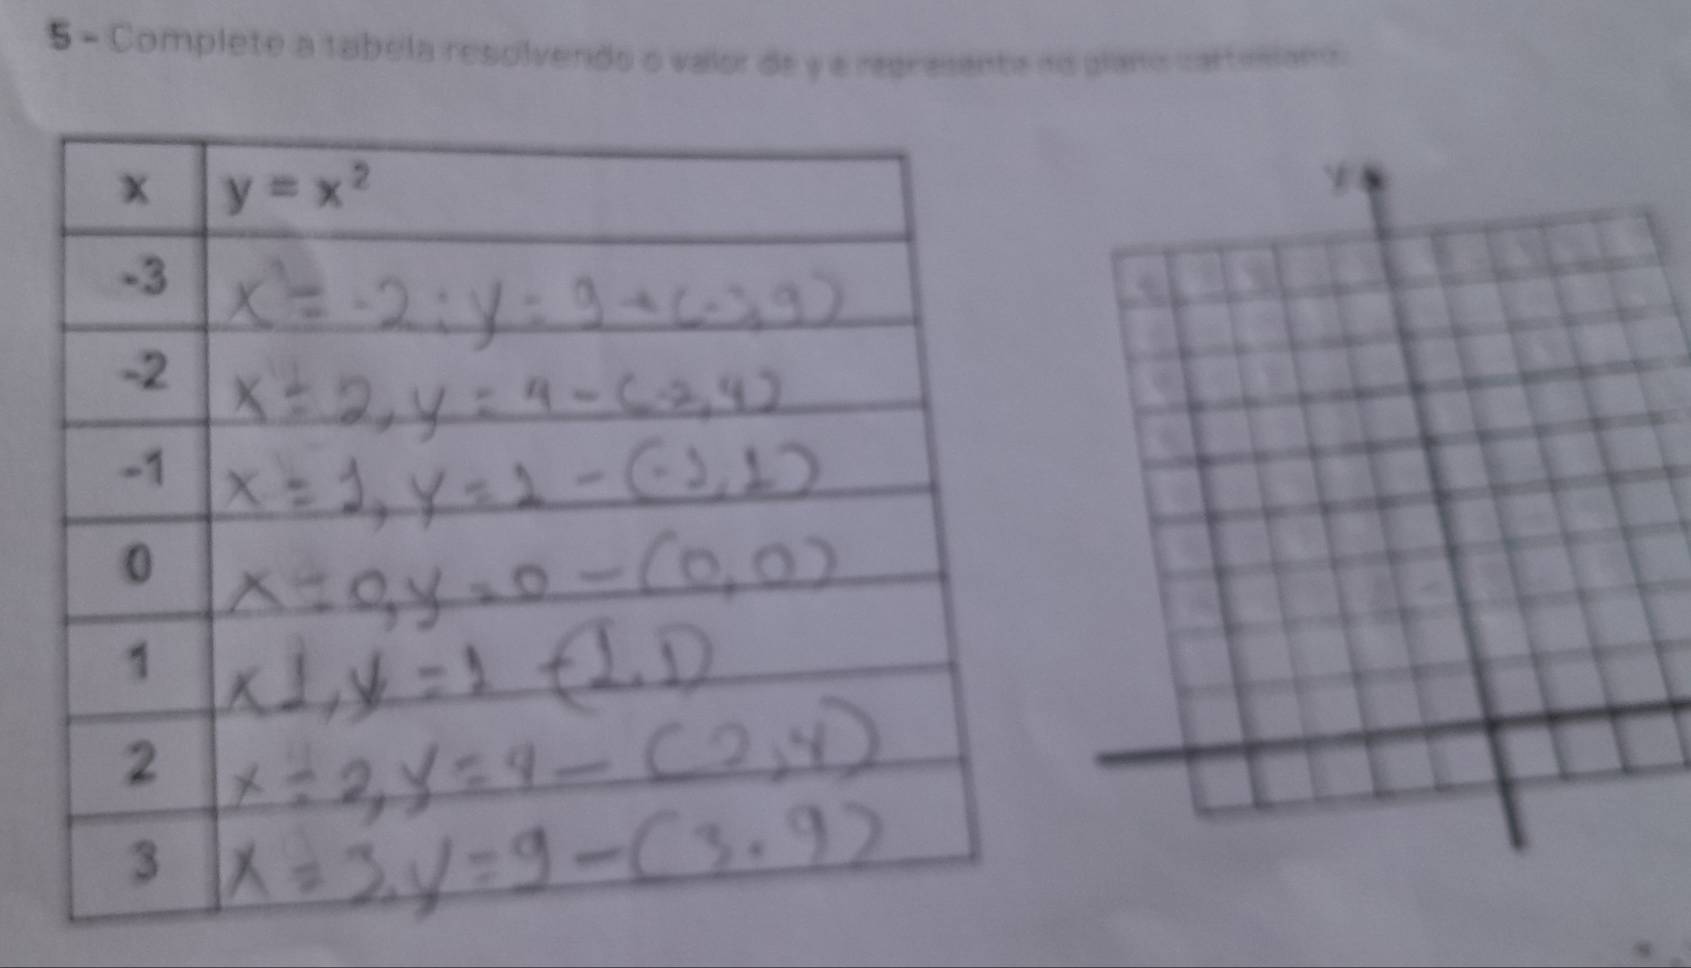 5 - Complete a tabela resolvendo o valor de y e represente no plano cartesiano.
x y = x²
-3 x = -2 : y = 9 → (-3,9)
-2 x = 2, y = 4 - (-2,4)
-1 x = 1, y = 1 - (-1,1)
0 x = 0, y = 0 - (0,0)
1 x 1, y = 1 - (1.1)
2 x = 2, y = 4 - (2,4)
3 x = 3. y = 9 - (3.9)
y